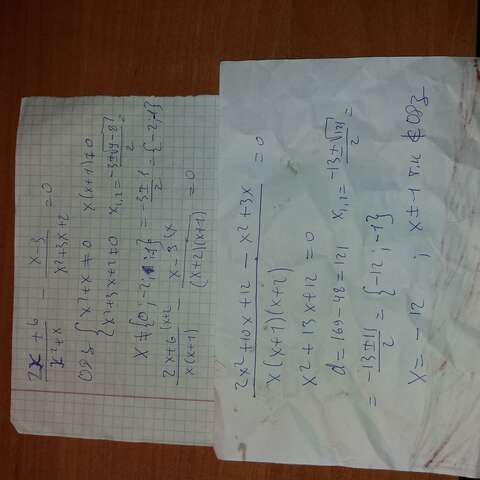 (2x + 6)/(x²+x) - (x-3)/(x²+3x+2) = 0
ОДЗ { x²+x ≠ 0   x(x+1) ≠ 0
{ x²+3x+2 ≠ 0   x₁,₂ = (-3±√(9-8))/2 =
x ≠ {0; -2; -1} = (-3±1)/2 = {-2; -1}
(2x+6)/(x(x+1)) ^(x+2) - (x-3)/((x+2)(x+1)) ^(x) = 0
(2x² + 10x + 12 - x² + 3x)/(x(x+1)(x+2)) = 0
x² + 13x + 12 = 0
d = 169 - 48 = 121   x₁,₂ = (-13±√121)/2 =
= (-13±11)/2 = {-12; -1}
x = -12 ; x ≠ -1 т.к ∉ ОДЗ